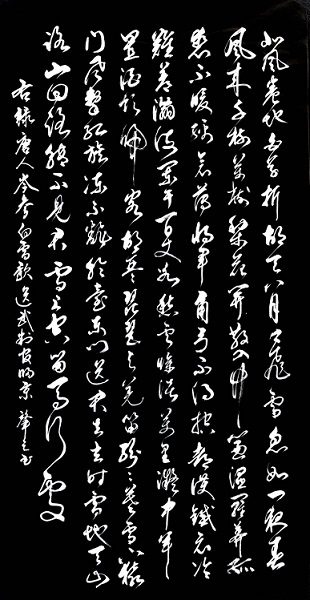 北風卷地白草折胡天八月即飛雪忽如一夜春
風来千樹萬樹梨花開散入珠簾濕羅幕狐
裘不暖錦衾薄将軍角弓不得控都護鐵衣冷
難着瀚海闌干百丈冰愁雲惨淡萬里凝中軍
置酒飲歸客胡琴琵琶与羌笛紛紛暮雪下轅
門風掣紅旗凍不翻輪臺東門送君去去時雪滿天山
路山回路轉不見君雪上空留馬行處
右録唐人岑参白雪歌送武判官歸京 書